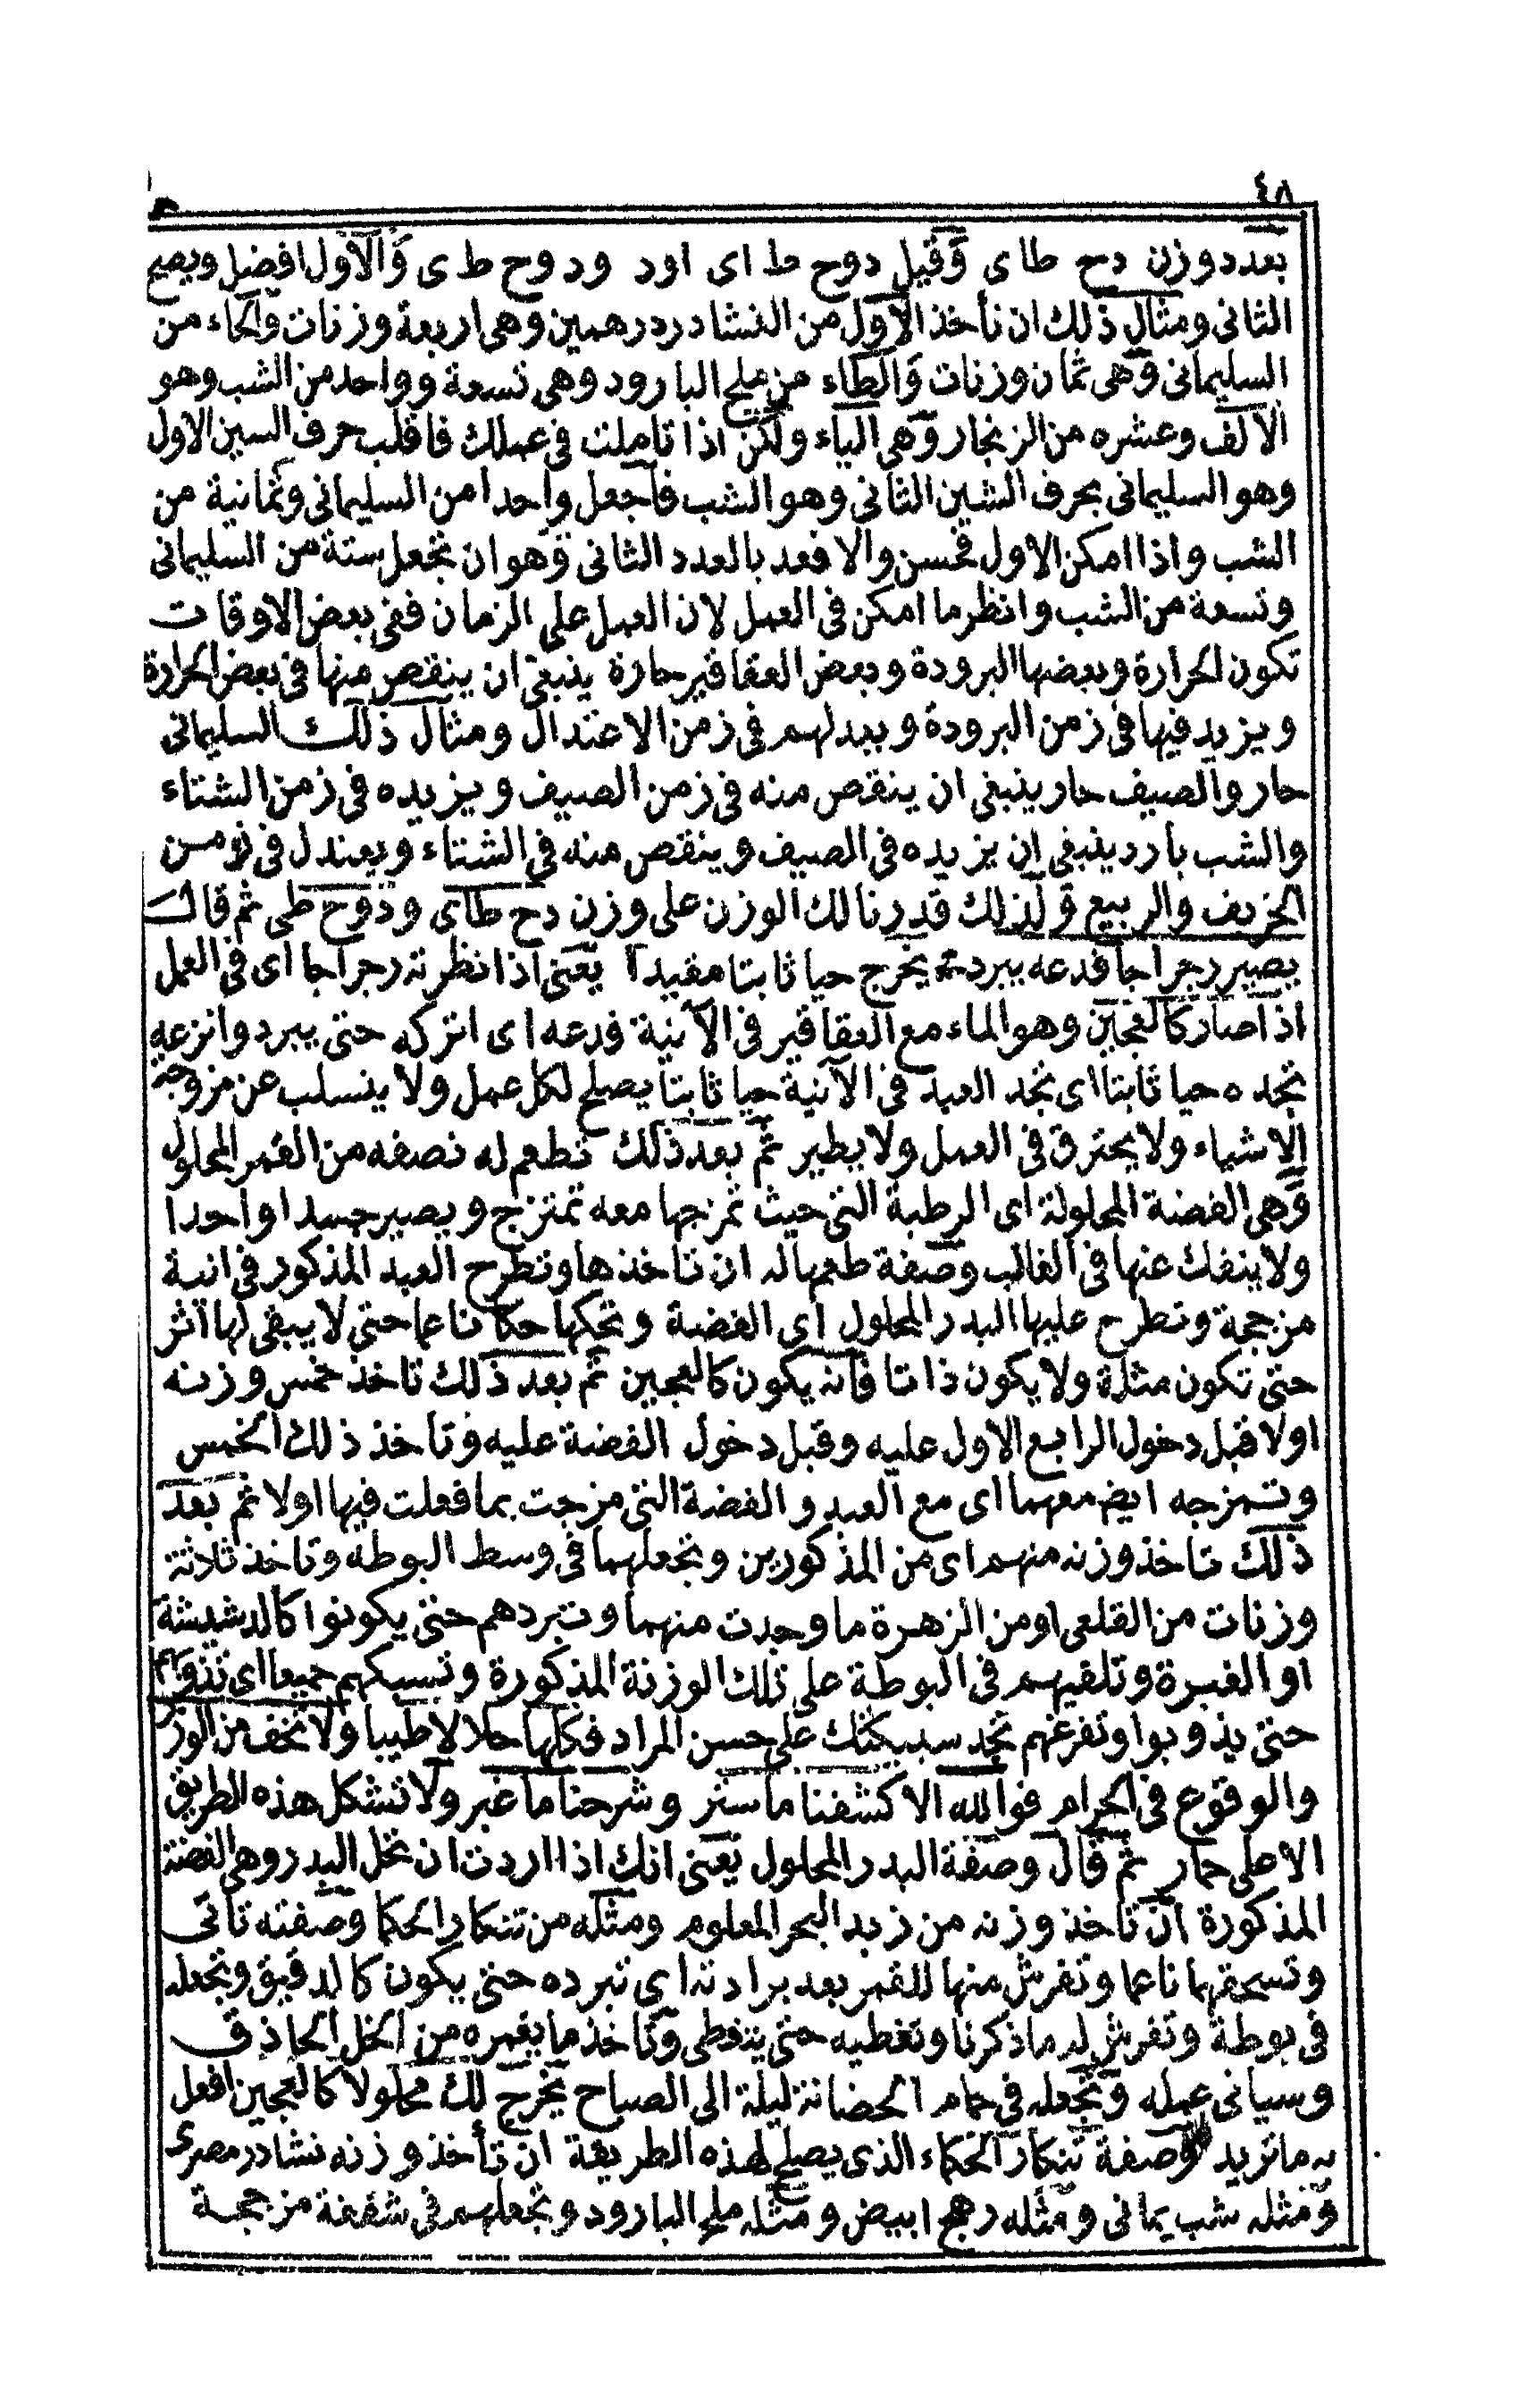 ٤٨
بعدد وزن دح طا ى وقيل دوح ط اى اود ودوح ط ى والاول افضل ويصح
الثانى ومثال ذلك ان تأخذ الاول من النشادر درهمين وهى اربعة وزنات والحاء من
السليمانى وهى ثمان وزنات والطاء من ملح البارود وهى تسعة وواحد من الشب وهو
الالف وعشره من الزنجار وهى الياء ولكن اذا تاملت فى عملك فاقلب حرف السين الاول
وهو السليمانى بحرف الشين الثانى وهو الشب فاجعل واحدا من السليمانى وثمانية من
الشب واذا امكن الاول فحسن والا فعد بالعدد الثانى وهو ان تجعل ستة من السليمانى
وتسعة من الشب وانظر ما امكن فى العمل لان العمل على الزمان ففى بعض الاوقات
تكون الحرارة وبعضها البرودة وبعض العقاقير حارة ينبغى ان ينقص منها فى بعض الحرارة
ويزيد فيها فى زمن البرودة ويبدلهم فى زمن الاعتدال ومثال ذلك السليمانى
حار والصيف حار ينبغى ان ينقص منه فى زمن الصيف ويزيده فى زمن الشتاء
والشب بارد ينبغى ان يزيده فى الصيف وينقص منه فى الشتاء ويعتدل فى زمن
الخريف والربيع ولذلك قدرنا لك الوزن على وزن دح طاى ودوح طى ثم قال
يصير رجراجا فدعه يبرد ثم يخرج حيا ثابتا مقيدا يعنى اذا نظرته رجراجا اى فى العمل
اذا صار كالعجين وهو الماء مع العقاقير فى الآنية فدعه اى اتركه حتى يبرد وانزعه
تجده حيا ثابتا اى تجد العبد فى الآنية حيا ثابتا يصلح لكل عمل ولا ينسلب عن مزوجة
الاشياء ولا يحترق فى العمل ولا يطير ثم بعد ذلك تطعم له نصفه من القمر المحلول
وهى الفضة المحلولة اى الرطبة التى حيث تمزجها معه تمتزج ويصير جسدا واحدا
ولا ينفك عنها فى الغالب وصفة طعمها له ان تاخذها وتطرح العبد المذكور فى انية
مزججة وتطرح عليها البدر المحلول اى الفضة وتحكها حكا ناعما حتى لا يبقى لها اثر
حتى تكون مثله ولا يكون ذاتا فانه يكون كالعجين ثم بعد ذلك تاخذ خمس وزنه
اولا قبل دخول الرابع الاول عليه وقبل دخول الفضة عليه وتاخذ ذلك الخمس
وتمزجه ايض معهما اى مع العبد والفضة التى مزجت بما فعلت فيها اولا ثم بعد
ذلك تاخذ وزنه منهم اى من المذكورين وتجعلهما فى وسط البوطه وتاخذ ثلاثة
وزنات من القلعى او من الزهرة ما وجدت منهما وتبردهم حتى يكونوا كالدشيشة
او الغبرة وتلقيهم فى البوطة على تلك الوزنة المذكورة وتسبكهم جميعا اى تذوبهم
حتى يذوبوا وتفرغهم تجد سبيكتك على حسن المراد فكلها حلالا طيبا ولا تخف من الوزر
والوقوع فى الحرام فوالله الا كشفنا ما ستر وشرحنا ما غبر ولا تشكل هذه الطريق
الا على حمار ثم قال وصفة البدر المحلول يعنى انك اذا اردت ان تحل البدر وهى الفضة
المذكورة ان تاخذ وزنه من زبد البحر المعلوم ومثله من تنكار الحكما وصفته تاتى
وتسحقهما ناعما وتفرش منها للقمر بعد برادته اى تبرده حتى يكون كالدقيق وتجعله
فى بوطة وتفرش له ما ذكرنا وتغطيه حتى يتغطى وتاخذ ما يغمره من الخل الحاذق
وسيانى عمله وتجعله فى حمام الحضانة ليلة الى الصباح يخرج لك محلولا كالعجين افعل
به ما تريد وصفة تنكار الحكماء الذى يصلح لهذه الطريقة ان تأخذ وزنه نشادر مصرى
ومثله شب يمانى ومثله رهج ابيض ومثله ملح البارود وتجعلهم فى شقفة مزججة